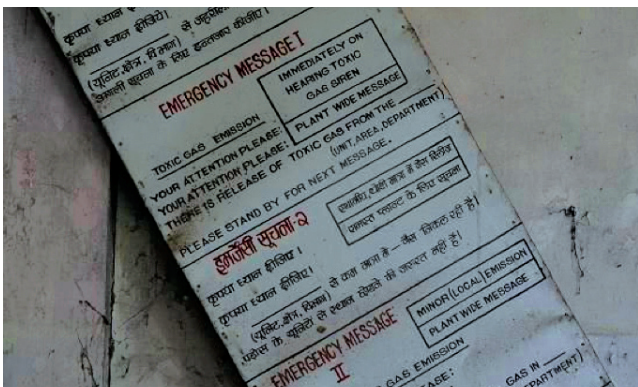 कृपया ध्यान
कृपया ध्यान दीजिये।
(यूनिट, क्षेत्र, विभाग) से
अगली सूचना के लिए इन्तजार कीजिए।
EMERGENCY MESSAGE I
IMMEDIATELY ON
HEARING TOXIC
GAS SIREN
PLANT WIDE MESSAGE
TOXIC GAS EMISSION
YOUR ATTENTION PLEASE:
YOUR ATTENTION PLEASE:
THERE IS RELEASE OF TOXIC GAS FROM THE
(UNIT, AREA, DEPARTMENT)
PLEASE STAND BY FOR NEXT MESSAGE.
इमर्जेंसी सूचना-२
स्थानीय, थोड़ी मात्रा में गैस रिसाव
समस्त प्लान्ट के लिए सूचना
कृपया ध्यान दीजिए।
कृपया ध्यान दीजिए।
(यूनिट, क्षेत्र, विभाग) से कम मात्रा में गैस निकल रही है।
पड़ोस के यूनिटों से स्थान छोड़ने की जरूरत नहीं है।
EMERGENCY MESSAGE
II
MINOR (LOCAL) EMISSION
PLANT WIDE MESSAGE
GAS EMISSION
GAS IN